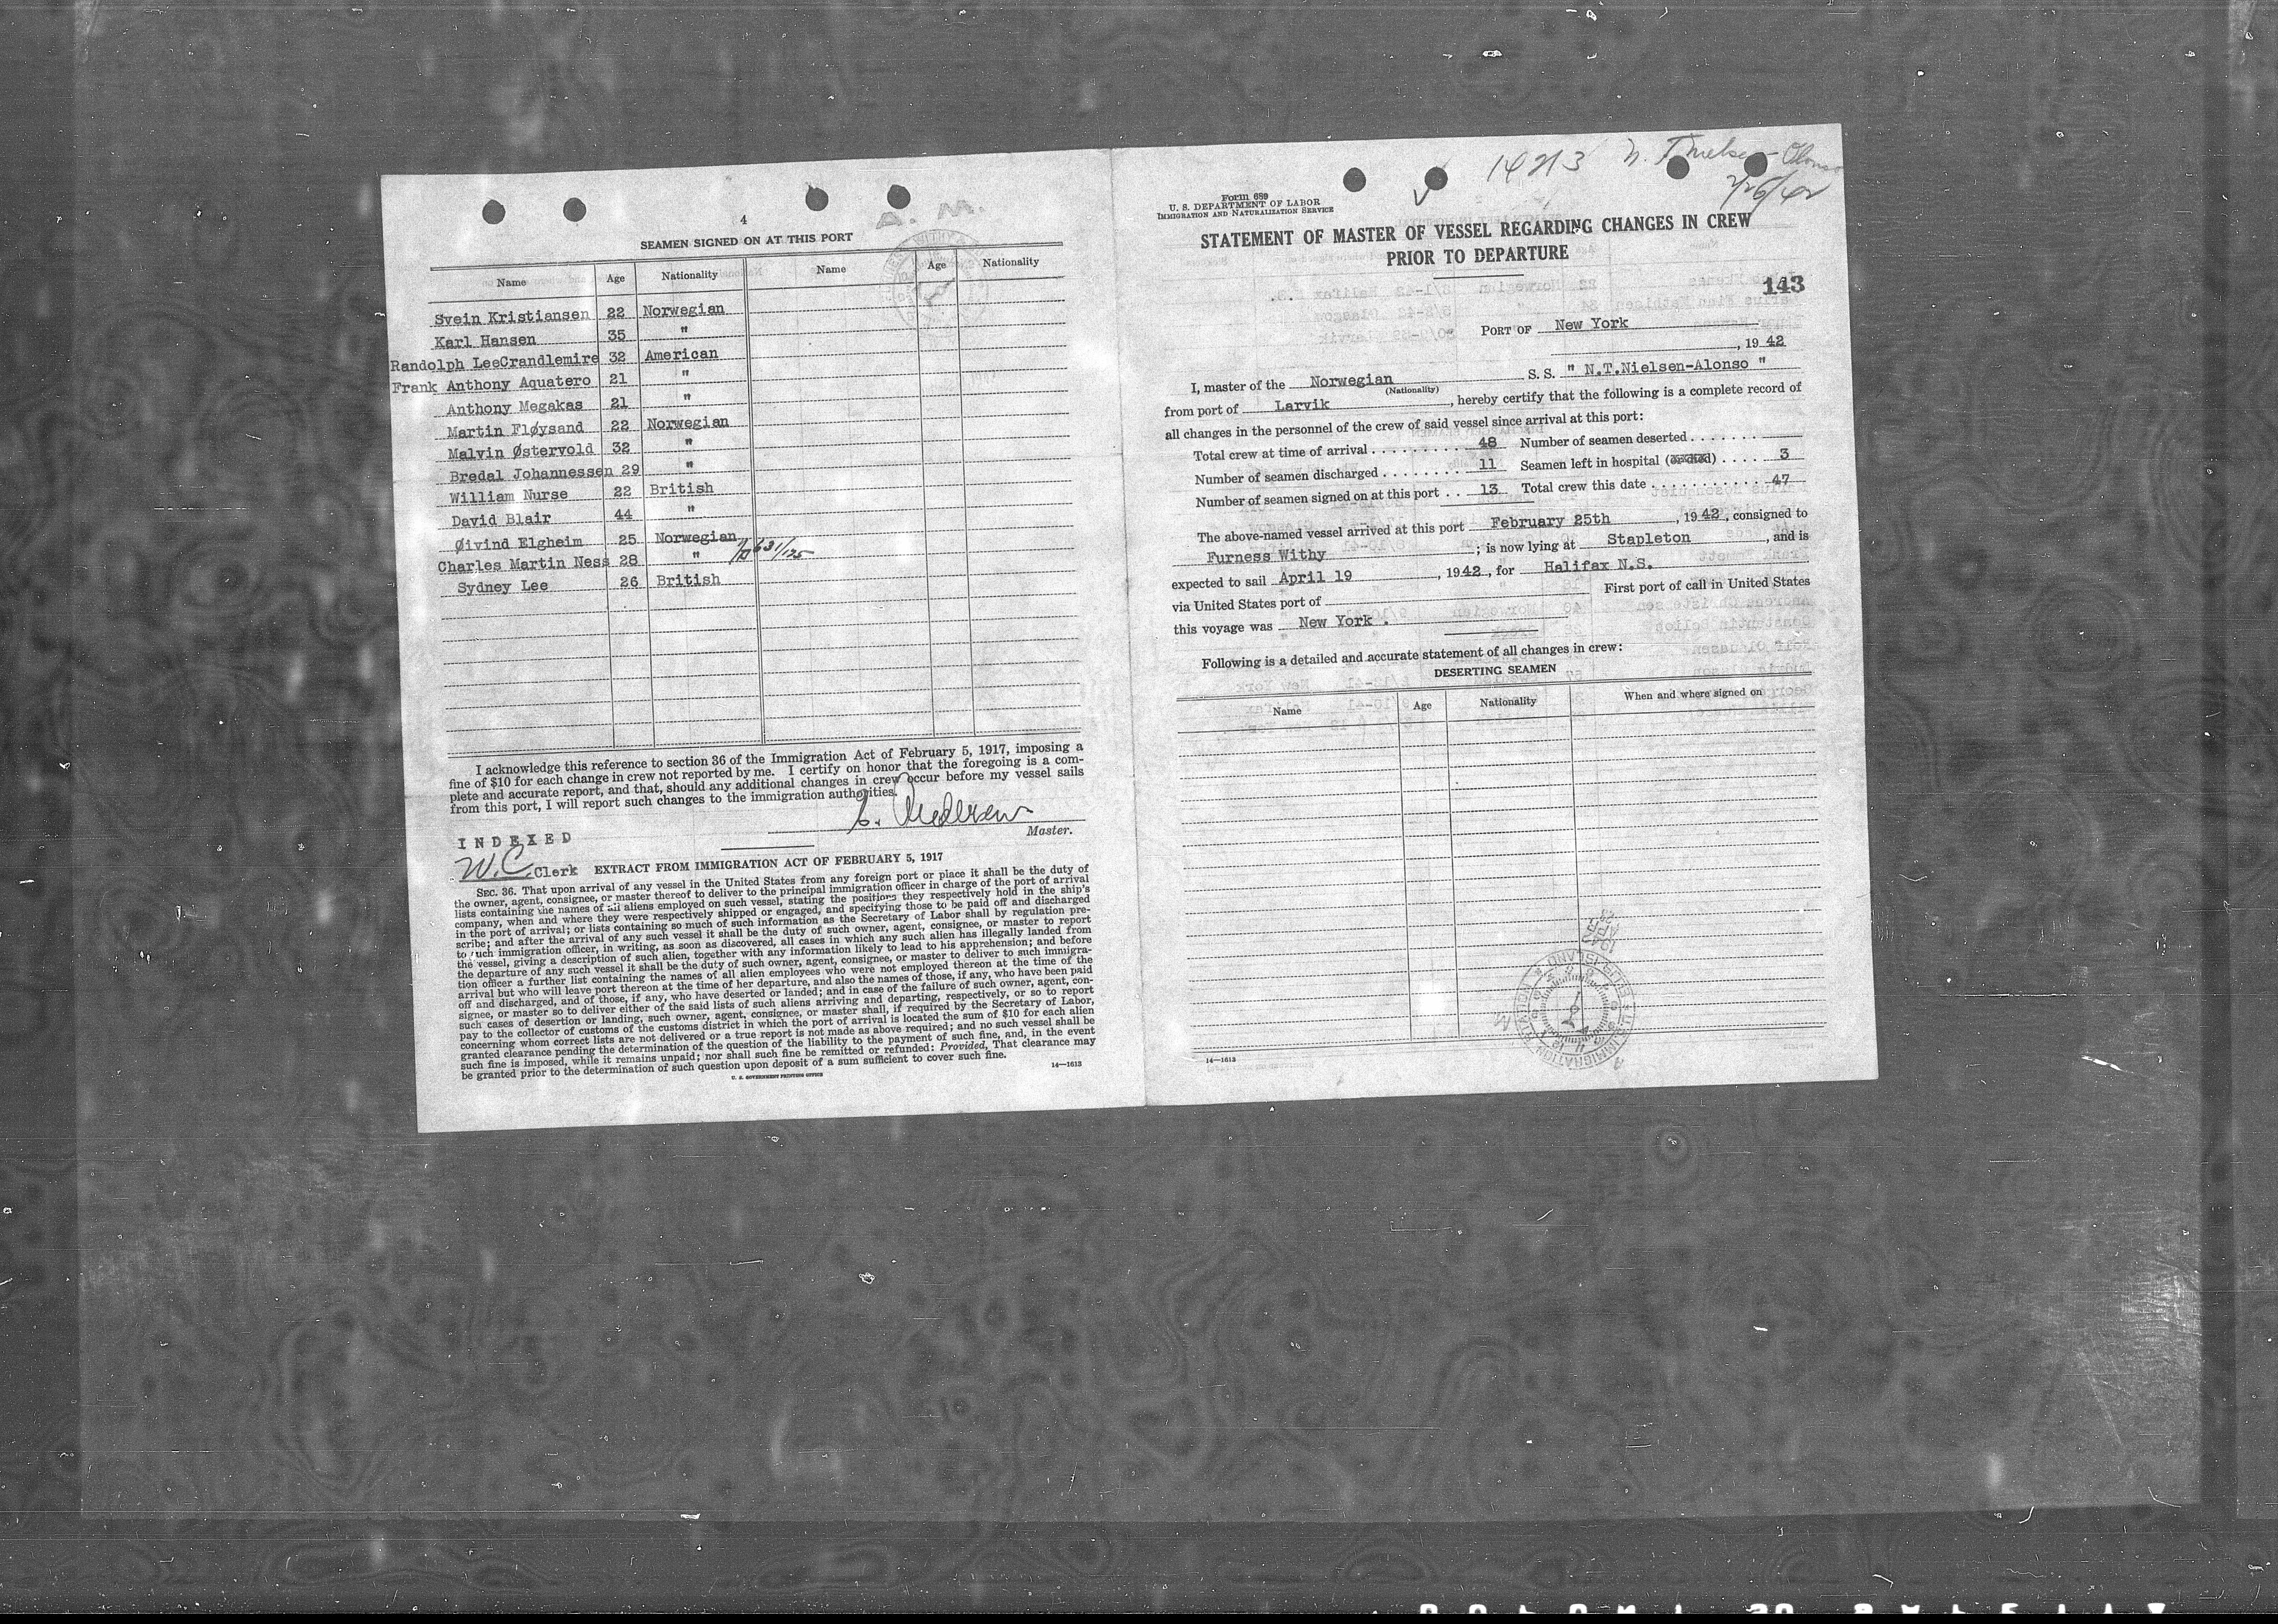 4
A. M.
SEAMEN SIGNED ON AT THIS PORT
Name Age Nationality Name Age Nationality
Svein Kristiansen 22 Norwegian
Karl Hansen 35 "
Randolph LeeCrandlemire 32 American
Frank Anthony Aquatero 21 "
Anthony Megakas 21 "
Martin Fløysand 22 Norwegian
Malvin Østervold 32 "
Bredal Johannessen 29 "
William Nurse 22 British
David Blair 44 "
Øivind Elgheim 25 Norwegian
Charles Martin Ness 28 "
Sydney Lee 26 British
I acknowledge this reference to section 36 of the Immigration Act of February 5, 1917, imposing a
fine of $10 for each change in crew not reported by me. I certify on honor that the foregoing is a com-
plete and accurate report, and that, should any additional changes in crew occur before my vessel sails
from this port, I will report such changes to the immigration authorities.
Master.
INDEXED
W.C. Clerk
EXTRACT FROM IMMIGRATION ACT OF FEBRUARY 5, 1917
SEC. 36. That upon arrival of any vessel in the United States from any foreign port or place it shall be the duty of
the owner, agent, consignee, or master thereof to deliver to the principal immigration officer in charge of the port of arrival
lists containing the names of all aliens employed on such vessel, stating the positions they respectively hold in the ship's
company, when and where they were respectively shipped or engaged, and specifying those to be paid off and discharged
in the port of arrival; or lists containing so much of such information as the Secretary of Labor shall by regulation pre-
scribe; and after the arrival of any such vessel it shall be the duty of such owner, agent, consignee, or master to report
to such immigration officer, in writing, as soon as discovered, all cases in which any such alien has illegally landed from
the vessel, giving a description of such alien, together with any information likely to lead to his apprehension; and before
the departure of any such vessel it shall be the duty of such owner, agent, consignee, or master to deliver to such immigra-
tion officer a further list containing the names of all alien employees who were not employed thereon at the time of the
arrival but who will leave port thereon at the time of her departure, and also the names of those, if any, who have been paid
off and discharged, and of those, if any, who have deserted or landed; and in case of the failure of such owner, agent, con-
signee, or master so to deliver either of the said lists of such aliens arriving and departing, respectively, or so to report
such cases of desertion or landing, such owner, agent, consignee, or master shall, if required by the Secretary of Labor,
pay to the collector of customs of the customs district in which the port of arrival is located the sum of $10 for each alien
concerning whom correct lists are not delivered or a true report is not made as above required; and no such vessel shall be
granted clearance pending the determination of the question of the liability to the payment of such fine, and, in the event
such fine is imposed, while it remains unpaid; nor shall such fine be remitted or refunded: Provided, That clearance may
be granted prior to the determination of such question upon deposit of a sum sufficient to cover such fine.
U. S. GOVERNMENT PRINTING OFFICE
14—1613
14213 N. T. Nielsen-Alonso
2/25/42
Form 689
U. S. DEPARTMENT OF LABOR
IMMIGRATION AND NATURALIZATION SERVICE
STATEMENT OF MASTER OF VESSEL REGARDING CHANGES IN CREW
PRIOR TO DEPARTURE
143
PORT OF New York
, 1942
I, master of the Norwegian S. S. " N.T.Nielsen-Alonso "
(Nationality)
from port of Larvik, hereby certify that the following is a complete record of
all changes in the personnel of the crew of said vessel since arrival at this port:
Total crew at time of arrival 48 Number of seamen deserted
Number of seamen discharged 11 Seamen left in hospital (or died) 3
Number of seamen signed on at this port 13 Total crew this date 47
The above-named vessel arrived at this port February 25th, 1942, consigned to
Furness Withy; is now lying at Stapleton, and is
expected to sail April 19, 1942, for Halifax N.S.
via United States port of First port of call in United States
this voyage was New York .
Following is a detailed and accurate statement of all changes in crew:
DESERTING SEAMEN
Name Age Nationality When and where signed on
14—1613